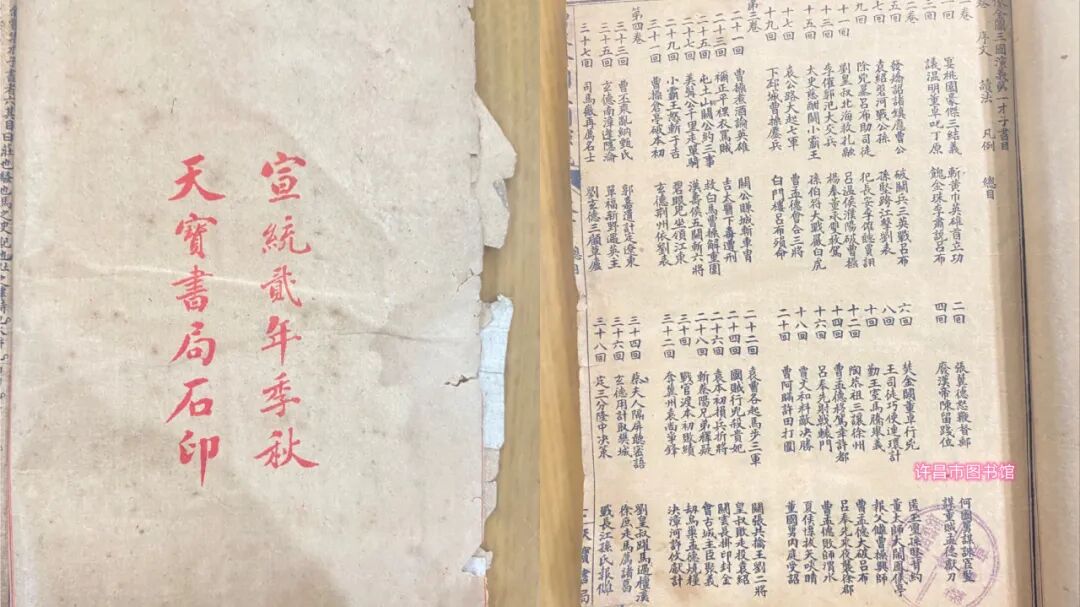 宣統貳年季秋
天寶書局石印
金圖三國演義第一才子書目
一卷 序文 讀法 凡例 總目
一回 宴桃園豪傑三結義 斬黃巾英雄首立功 二回 張翼德怒鞭督郵 何國舅謀誅宦豎
三回 議溫明董卓叱丁原 餽金珠李肅說呂布 四回 廢漢帝陳留踐位 謀董賊孟德獻刀
二卷
五回 發矯詔諸鎮應曹公 破關兵三英戰呂布 六回 焚金闕董卓行兇 匿玉璽孫堅背約
七回 袁紹磐河戰公孫 孫堅跨江擊劉表 八回 王司徒巧使連環計 董太師大鬧鳳儀亭
九回 除兇暴呂布助司徒 犯長安李傕聽賈詡 十回 勤王室馬騰舉義 報父讎曹操興師
十一回 劉皇叔北海救孔融 呂溫侯濮陽破曹操 十二回 陶恭祖三讓徐州 曹孟德大破呂布
十三回 李傕郭汜大交兵 楊奉董承雙救駕 十四回 曹孟德移駕幸許都 呂奉先乘夜襲徐郡
十五回 太史慈酣鬪小霸王 孫伯符大戰嚴白虎 十六回 呂奉先射戟轅門 曹孟德敗師淯水
十七回 袁公路大起七軍 曹孟德會合三將 十八回 賈文和料敵決勝 夏侯惇拔矢啖睛
十九回 下邳城曹操鏖兵 白門樓呂布殞命 二十回 曹阿瞞許田打圍 董國舅內庭受詔
第三卷
二十一回 曹操煮酒論英雄 關公賺城斬車冑 二十二回 袁曹各起馬步三軍 關張共擒王劉二將
二十三回 禰正平裸衣罵賊 吉太醫下毒遭刑 二十四回 國賊行兇殺貴妃 皇叔敗走投袁紹
二十五回 屯土山關公約三事 救白馬曹操解重圍 二十六回 袁本初損兵折將 關雲長掛印封金
二十七回 美髯公千里走單騎 漢壽侯五關斬六將 二十八回 斬蔡陽兄弟釋疑 會古城主臣聚義
二十九回 小霸王怒斬于吉 碧眼兒坐領江東 三十回 戰官渡本初敗績 劫烏巢孟德燒糧
三十一回 曹操倉亭破本初 玄德荊州依劉表 三十二回 奪冀州袁尚爭鋒 決漳河許攸獻計
第四卷
三十三回 曹丕乘亂納甄氏 郭嘉遺計定遼東 三十四回 蔡夫人隔屏聽密語 劉皇叔躍馬過檀溪
三十五回 玄德南漳逢隱淪 單福新野遇英主 三十六回 玄德用計取樊城 徐庶走馬薦諸葛
三十七回 司馬徽再薦名士 劉玄德三顧草廬 三十八回 定三分隆中決策 戰長江孫氏報讎
總目
天寶書局
许昌市图书馆